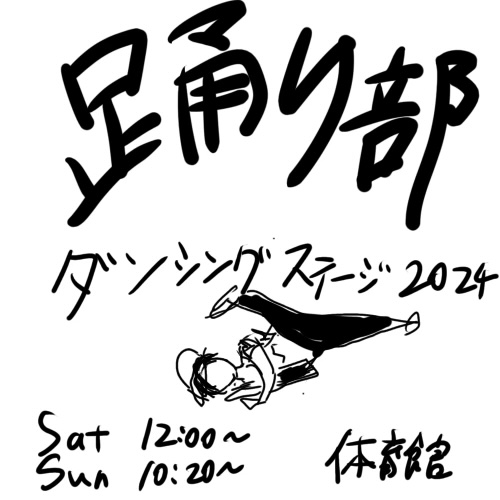 踊り部
ダンシングステージ2024
Sat 12:00~
Sun 10:20~
体育館